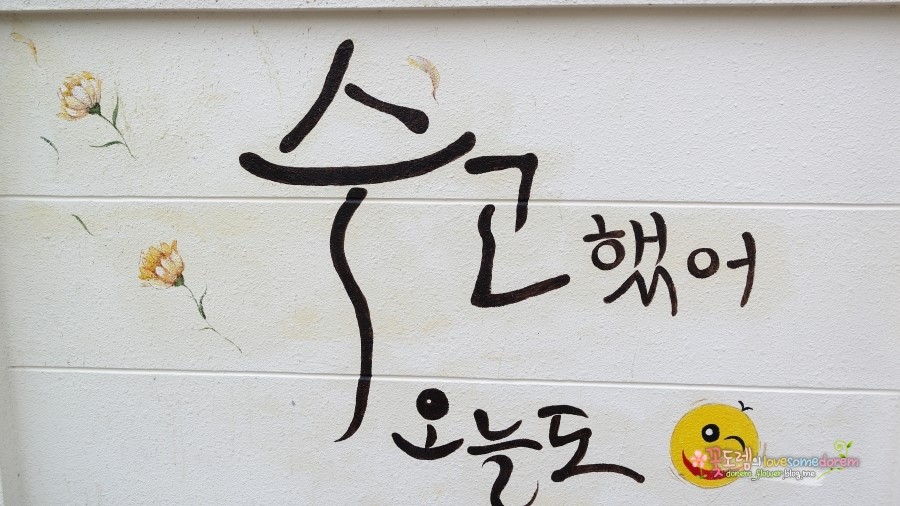 수고
했어
오늘도
꽃도렘의 lovesomedorem
dorem_flower.blog.me